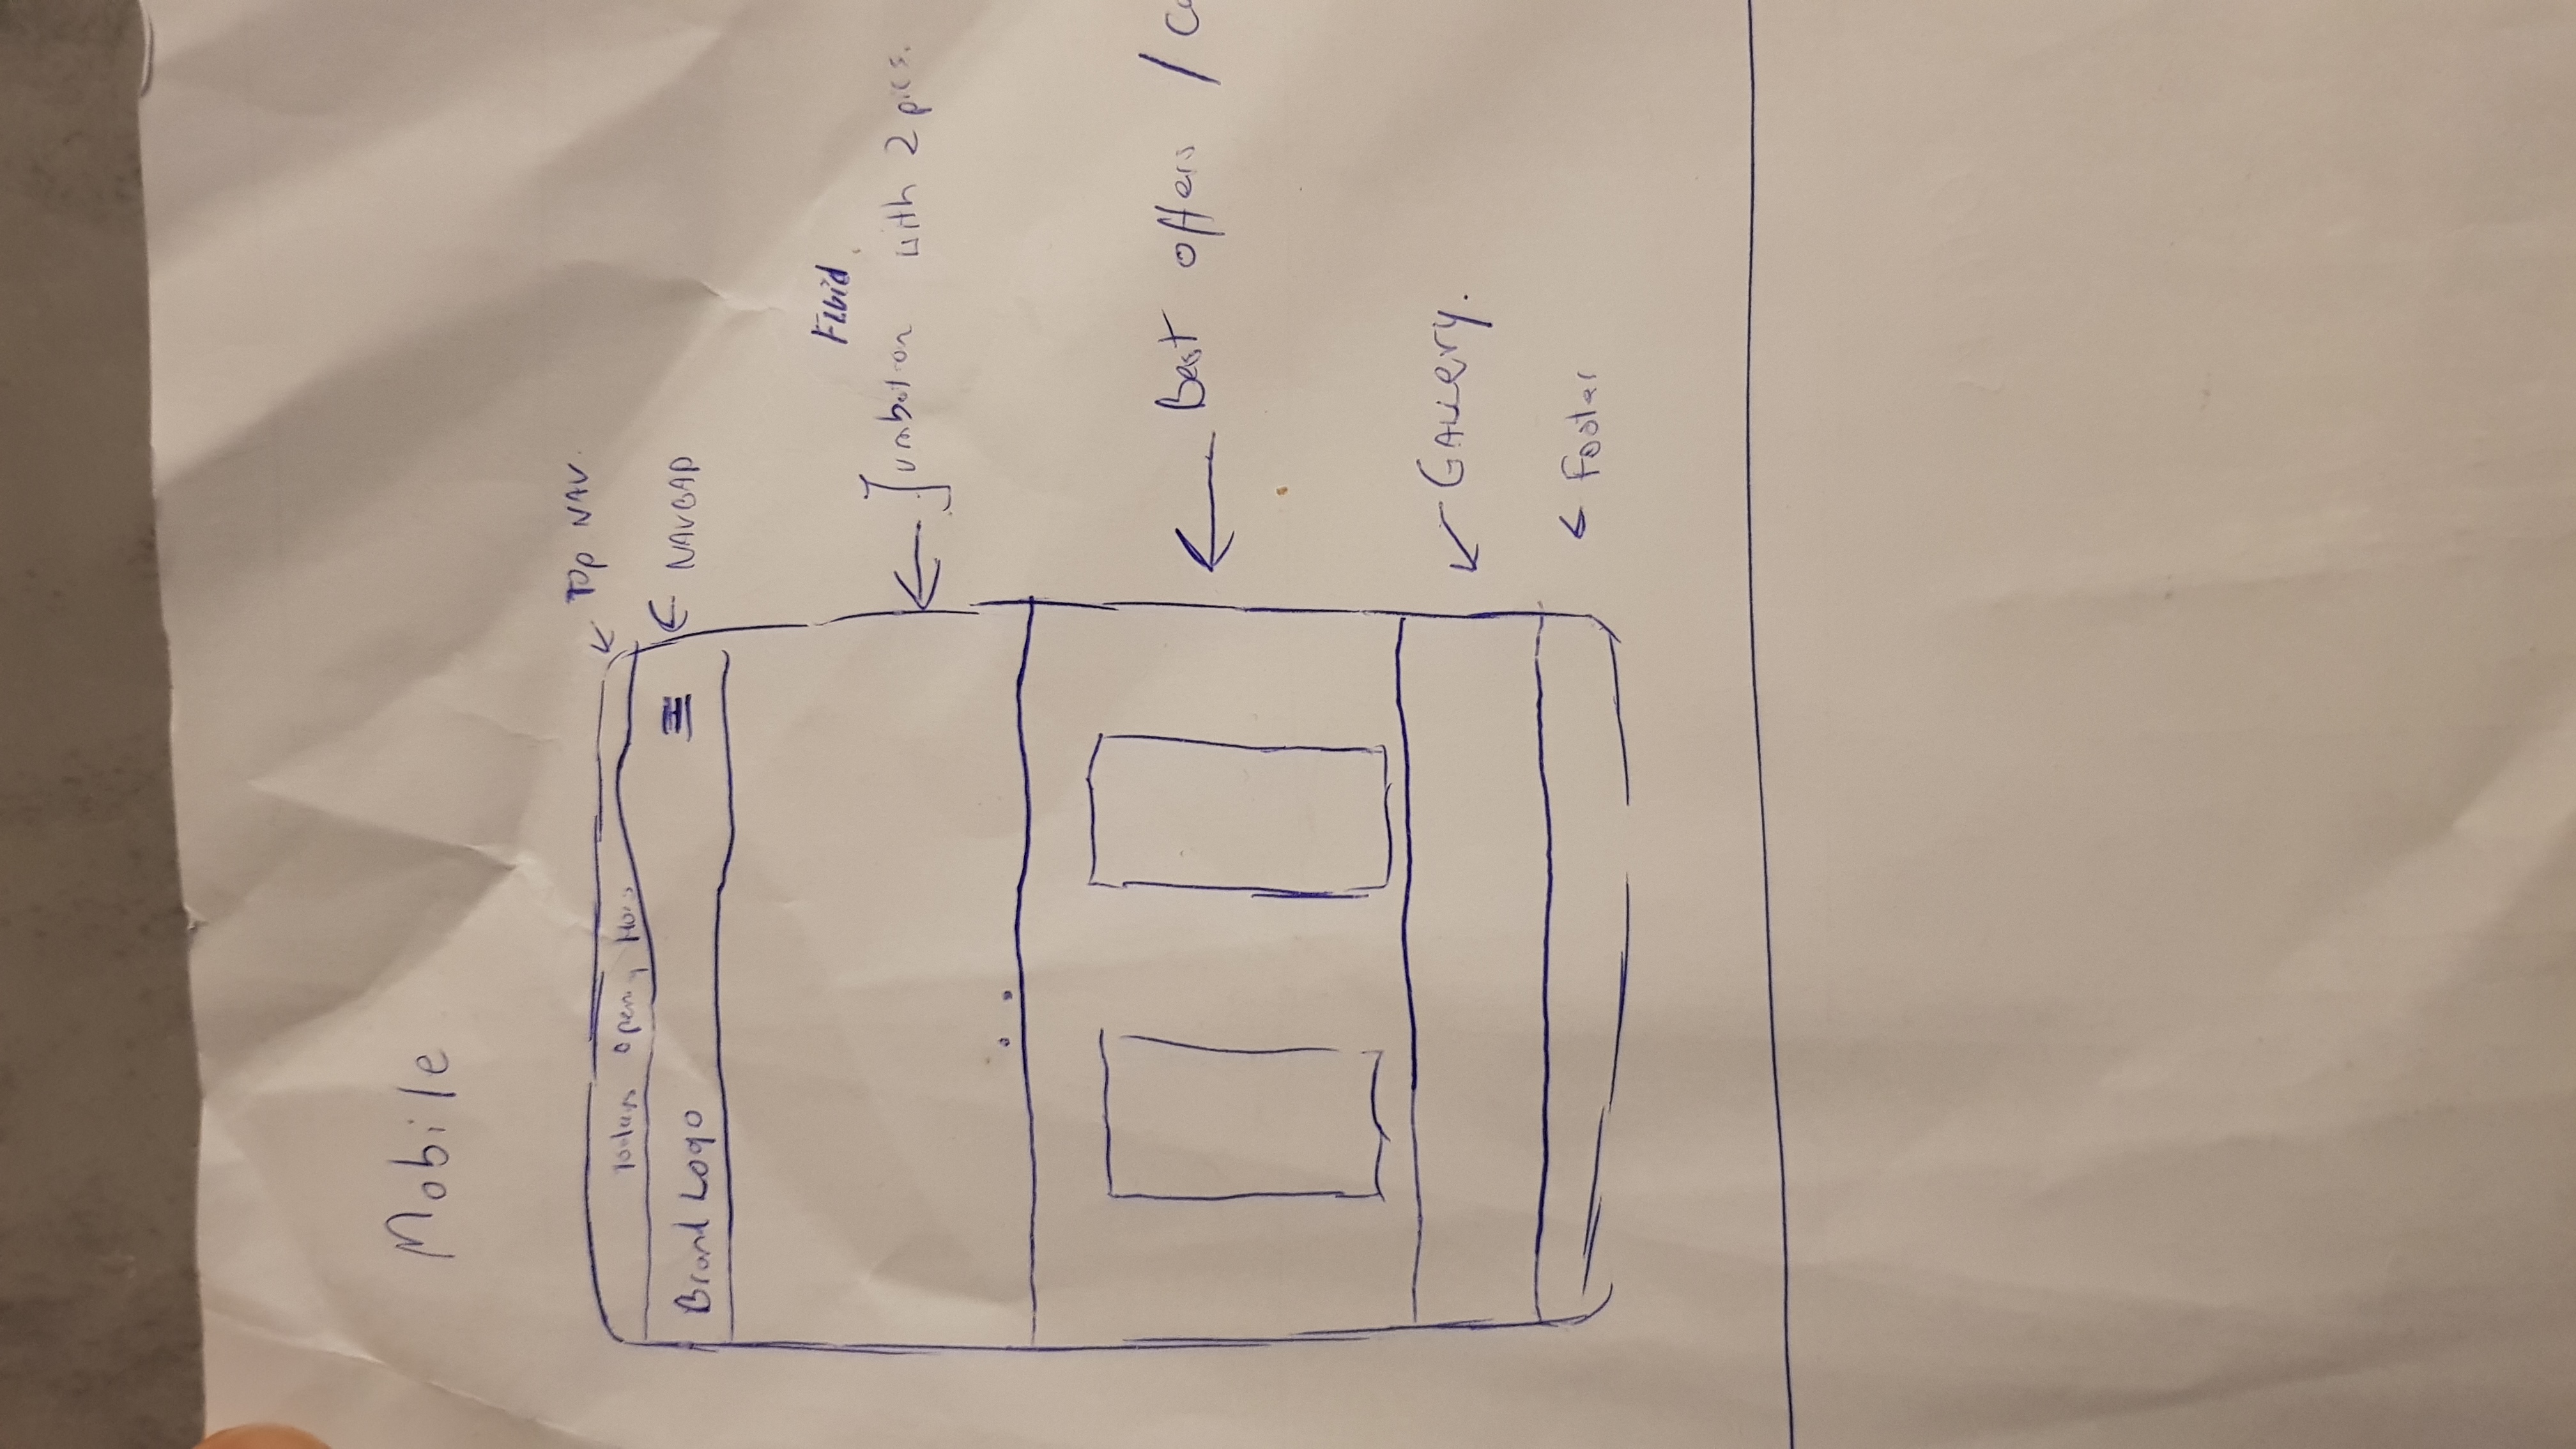 Mobile
Top NAV.
Todays Opening Hours
Brand Logo
NAVBAR
Fluid
Jumbotron with 2 pics.
Best offers /
Gallery.
Footer